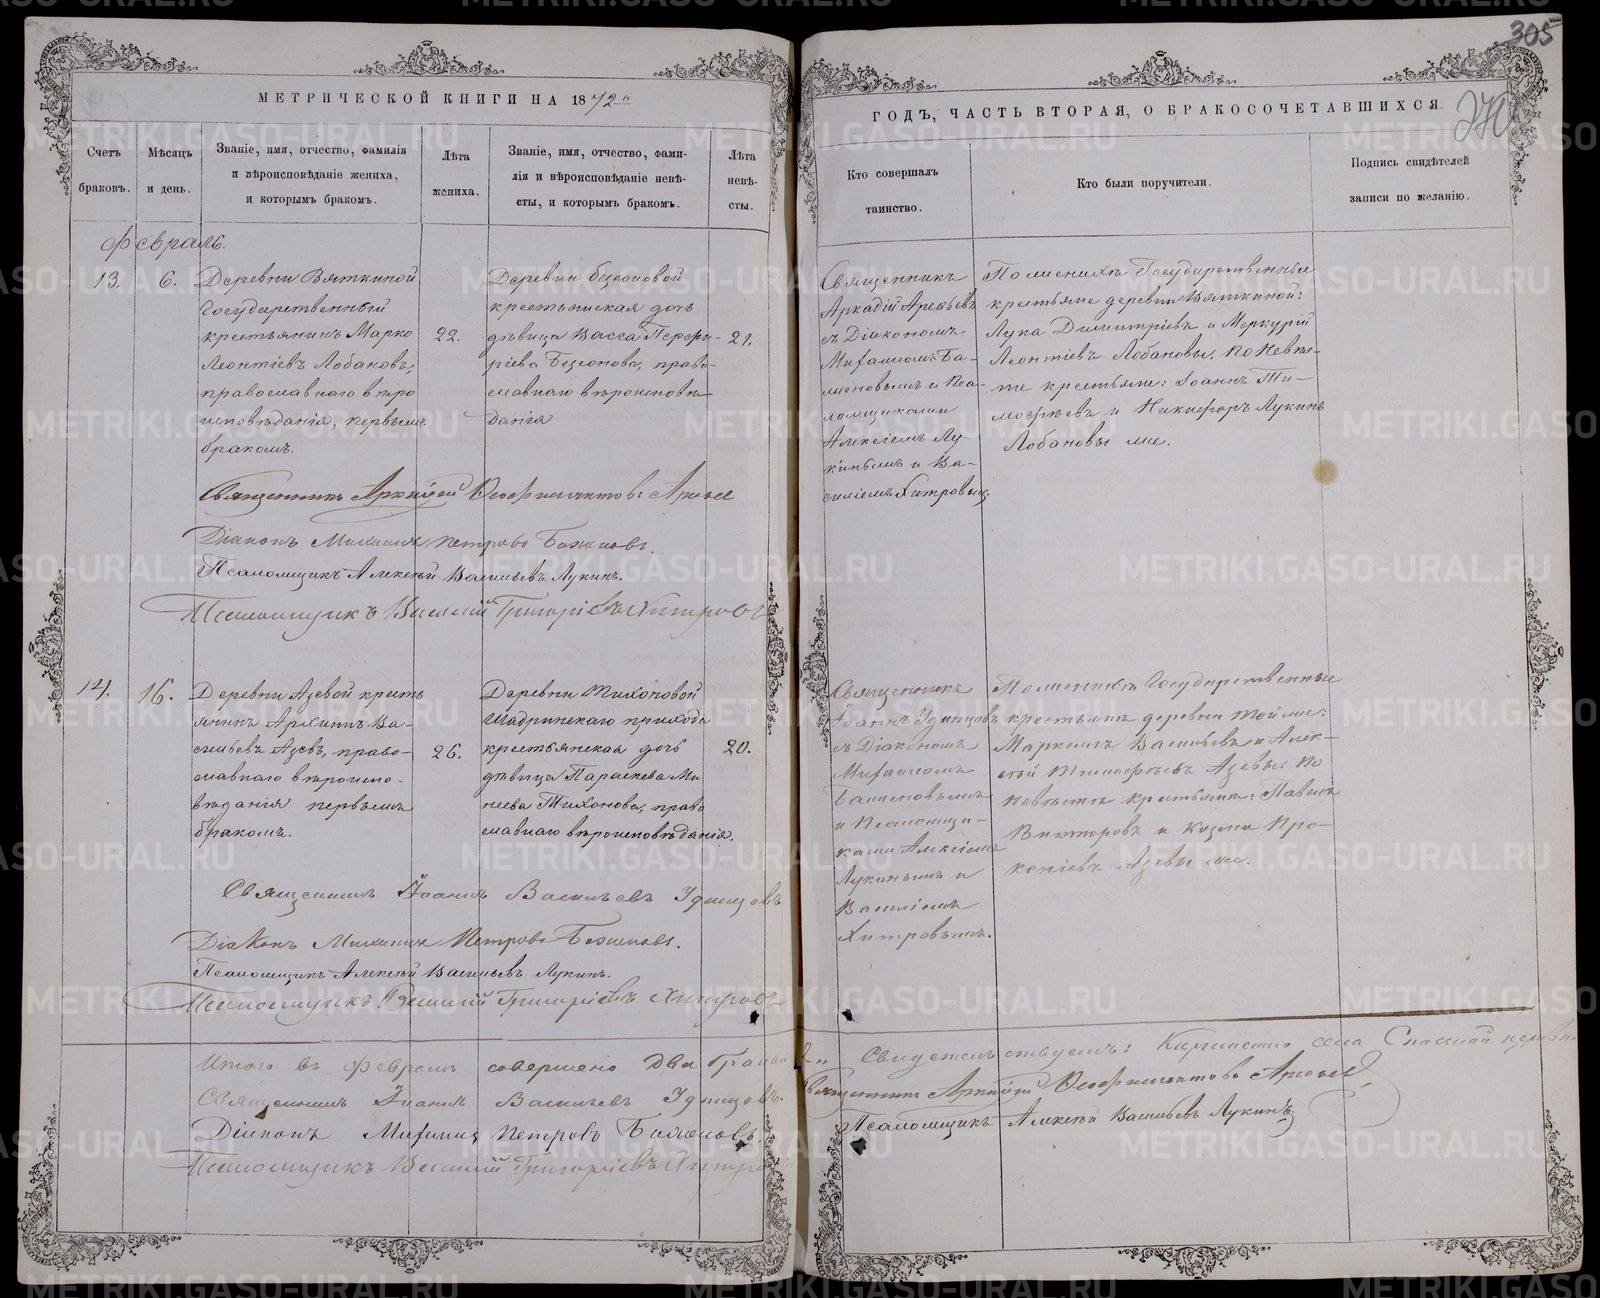 305
МЕТРИЧЕСКОЙ КНИГИ НА 1872
ГОДЪ, ЧАСТЬ ВТОРАЯ, О БРАКОСОЧЕТАВШИХСЯ.
Счетъ браковъ.
Мѣсяцъ и день.
Званіе, имя, отчество, фамилія
и вѣроисповѣданіе жениха,
и которымъ бракомъ.
Лѣта жениха.
Званіе, имя, отчество, фами-
лія и вѣроисповѣданіе невѣ-
сты, и которымъ бракомъ.
Лѣта невѣ-
сты.
Кто совершалъ
таинство.
Кто были поручители.
Подпись свидѣтелей
записи по желанію.
Февраль.
13.
6.
Деревни Вяткиной
Государственный
крестьянинъ Марко
Леонтіевъ Лобановъ,
православнаго вѣро
исповѣданія, первымъ
бракомъ.
22.
Деревни
крестьянская дочь
дѣвица Васса Перфи-
ріева право-
славнаго вѣроисповѣ-
данія
21.
Священникъ
Аркадій
съ Діакономъ
Михаиломъ Ба-
женовымъ и Пса-
ломщиками
Алексіемъ Лу-
кинымъ и Ва-
силіемъ Хитровымъ.
По женихѣ Государственные
крестьяне деревни Вяткиной:
Лука Димитріевъ и Меркурій
Леонтіевъ Лобановы, по невѣс-
тѣ крестьяне: Іоаннъ Ти-
моѳѣевъ и Никифоръ Лукинъ
Лобановы же.
Священникъ Аркадій
Діаконъ Михаилъ Петровъ Баженовъ.
Псаломщикъ Алексѣй Васильевъ Лукинъ.
Псаломщикъ Василій Григоріевъ Хитровъ
14.
16.
Деревни Азевой кресть
янинъ Архипъ Ва-
сильевъ Азевъ, право-
славнаго вѣроиспо-
вѣданія первымъ
бракомъ.
26.
Деревни Тихоновой
Шадринскаго прихода
крестьянская дочь
дѣвица Параскева Ми
неева Тихонова, право
славнаго вѣроисповѣданія.
20.
Священникъ
Іоаннъ Удинцовъ
съ Діакономъ
Михаиломъ
Баженовымъ
и Псаломщи-
ками Алексіемъ
Лукинымъ и
Василіемъ
Хитровымъ.
По женихѣ Государственные
крестьяне деревни
Васильевъ и Алек-
сѣй Тимоѳѣевъ Азевы. По
невѣстѣ крестьяне: Павелъ
Викторовъ и Козма Про-
копіевъ Азевы же.
Священникъ Іоаннъ Васильевъ Удинцовъ
Діаконъ Михаилъ Петровъ Баженовъ.
Псаломщикъ Алексѣй Васильевъ Лукинъ.
Псаломщикъ Василій Григоріевъ Хитровъ
Итого въ Февралѣ совершено два брака 2
Священникъ Іоаннъ Васильевъ Удинцовъ.
Діаконъ Михаилъ Петровъ Баженовъ.
Псаломщикъ Василій Григоріевъ Хитровъ
Свидетельствуемъ: села Спасской церкви
Священникъ Аркадій
Псаломщикъ Алексѣй Васильевъ Лукинъ
METRIKI.GASO-URAL.RU